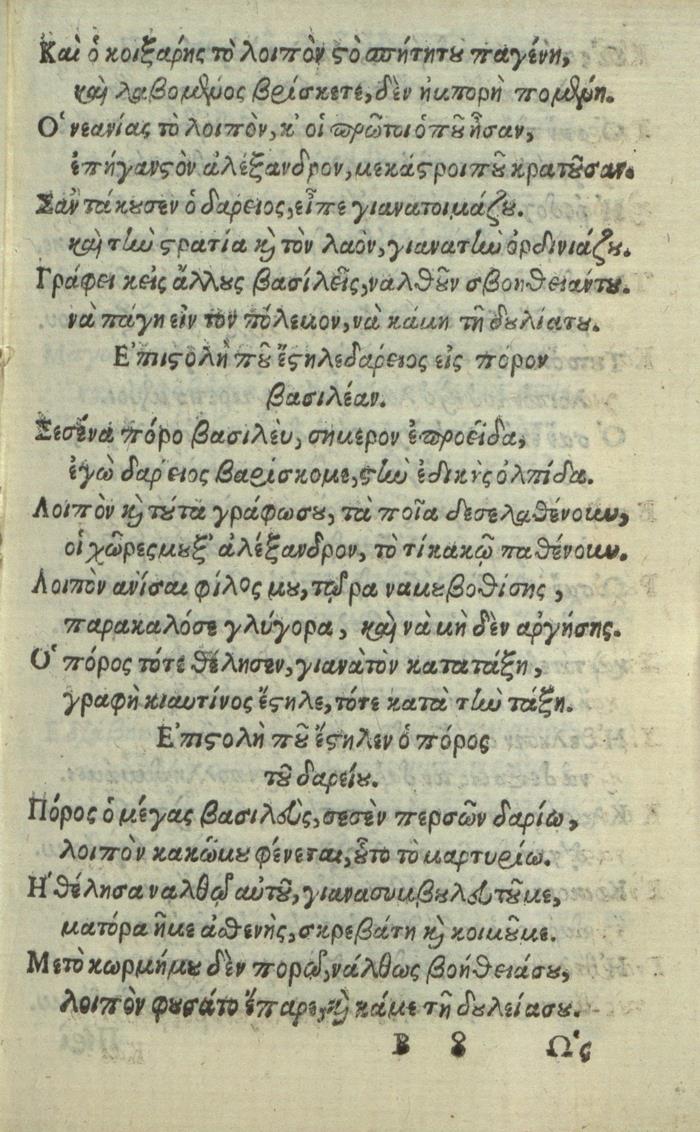 Καὶ ὁ κοιξαρης τὸ λοιπὸν ςὸ σπήτητου παγένη,
καὶ λαβομθύος βρίσκετε, δὲν ἠμπορὴ πομθύη.
Ο῾ νεανίας τὸ λοιπὸν, κ' οἱ πρῶτοι ὁποῦ ἦσαν,
ἐπήγανςὸν ἀλέξανδρον, μεκάςροι ποῦ κρατοῦσαν.
Σαν τάκουσεν ὁ δαρειος, εἶπε γιανατοιμάζου.
καὶ τὼ ςρατία καὶ τὸν λαὸν, γιανατὼ ὀρδινιάζου.
Γράφει κεἰς ἄλλους βασίλεῖς, ναλθοῦν σβοηθειαντου.
νὰ πάγη εἰν τον πόλεμον, νὰ κάμη τῆ δουλίατου.
Ε᾿πιςολὴ ποῦ ἔςηλε δαρειος εἰς πόρον
βασιλέαν.
Σεσένα πόρο βασιλὲυ, σημερον ἐπροεῖδα,
ἐγὼ δαρειος βαρίσκομε, ςτὼ ἐδικής ὀλπίδα.
Λοιπὸν καὶ τούτα γράφωσου, τὰ ποῖα δεσελαθένουν,
οἱ χῶρες μουξ' ἀλέξανδρον, τὸ τί κακῷ παθένουν.
Λοιπὸν ανίσαι φίλος μου, τῶρα ναμουβοθίσης,
παρακαλόσε γλύγορα, καὶ νὰ μὴ δὲν ἀργήσης.
Ο῾ πόρος τότε θέλησεν, γιανὰτὸν κατατάξη,
γραφὴ κιαυτίνος ἔςηλε, τότε κατὰ τὼ τάξη.
Ε᾿πιςολὴ ποῦ ἔςηλεν ὁ πόρος
τοῦ δαρείου.
Πόρος ὁ μέγας βασιλεὺς, σεσὲν περσῶν δαρίω,
λοιπὸν κακὼμου φένεται, οὗτο τὸ μαρτυρίω.
Η῎θέλησα ναλθῶ αὐτοῦ, γιανασυμβουλευτοῦμε,
ματόρα ἦμε ἀθενὴς, σκρεβάτη καὶ κοιμοῦμε.
Μετὸ κωρμήμου δὲν πορῶ, νάλθως βοήθειάσου,
λοιπὸν φουσάτο ἔπαρε, καὶ κάμε τῆ δουλείασου.
Β 8 Ω῾ς